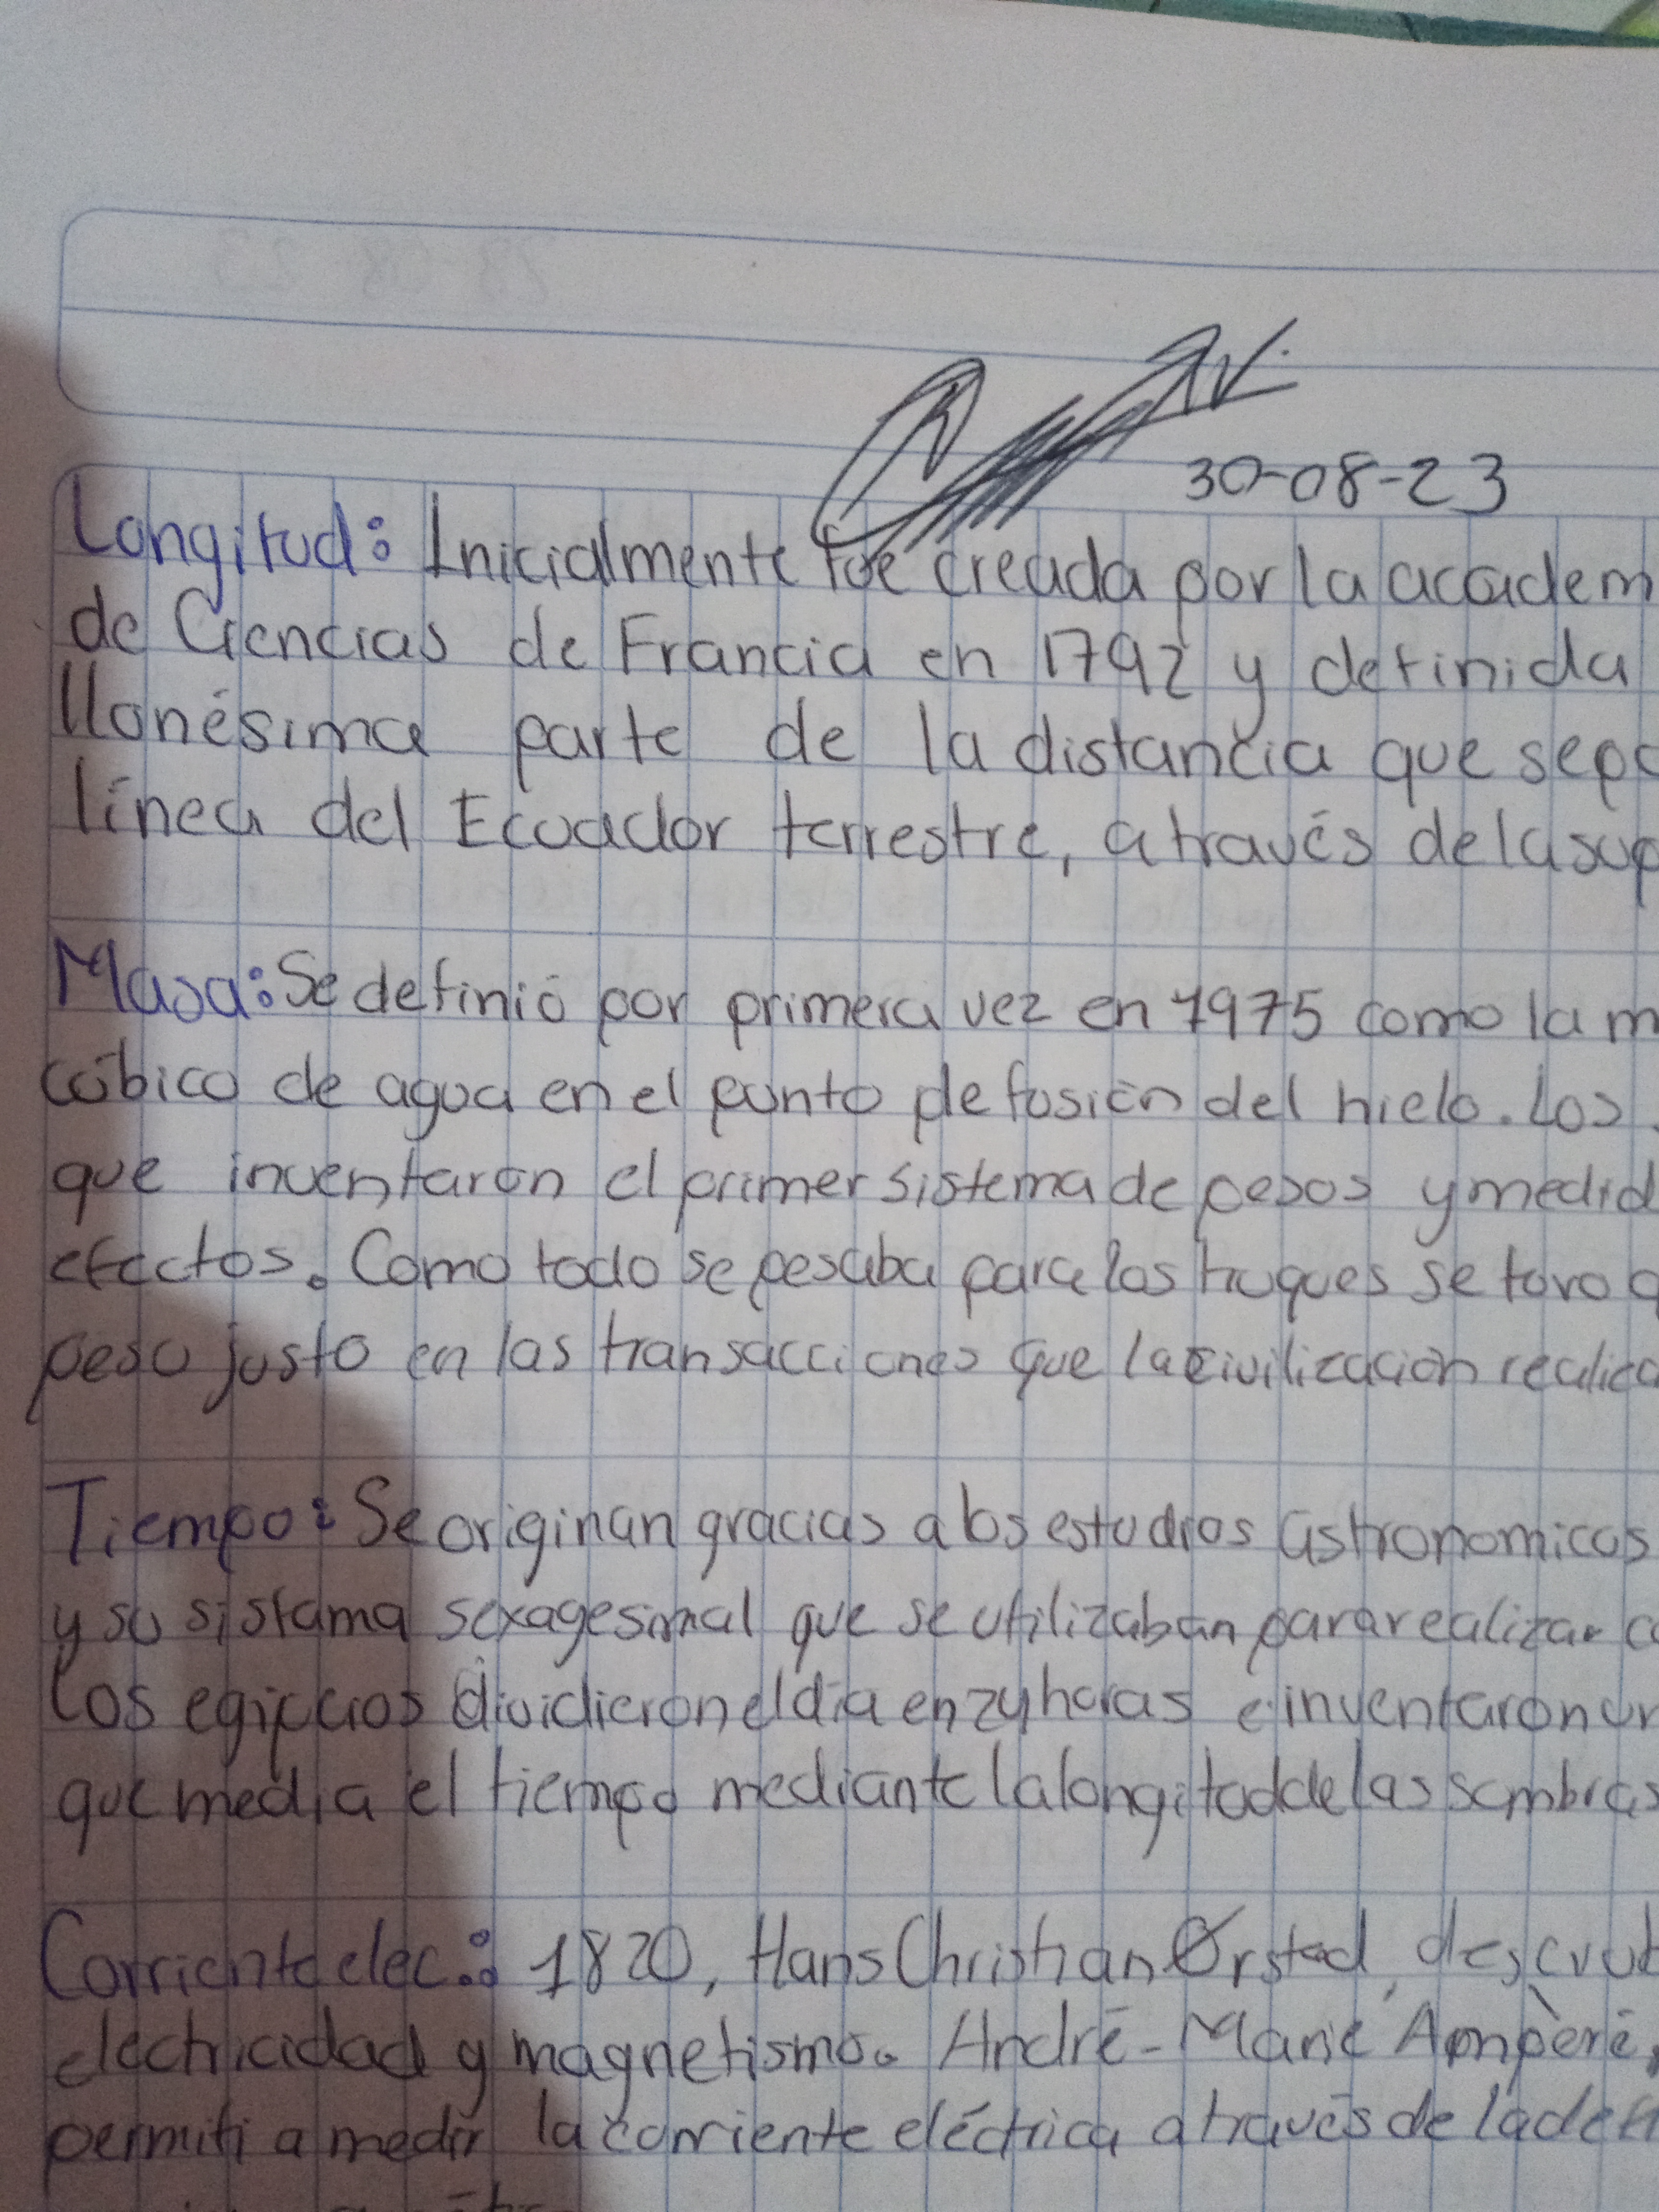 30-08-23
Longitud: Inicialmente fue creada por la academ
de Ciencias de Francia en 1792 y definida
llonésima parte de la distancia que sepa
línea del Ecuador terrestre, através de la sup
Masa: Se definió por primera vez en 1975 como la m
cúbico de agua en el punto de fusión del hielo. Los
que inventaron el primer sistema de pesos y medid
efectos. Como todo se pesaba para los truques se tuvo q
peso justo en las transacciones que la civilización realiza
Tiempo: Se originan gracias a los estudios astronomicos
y su sistama sexagesimal que se utilizaban para realizar co
Los egipcios dividieron el día en 24 horas e inventaron un
que media el tiempo mediante la longitud de las sombras
Corriente elec.: 1820, Hans Christian Ørsted, descrub
electricidad y magnetismo. André-Marie Ampère,
permiti a medir la corriente eléctrica através de la def